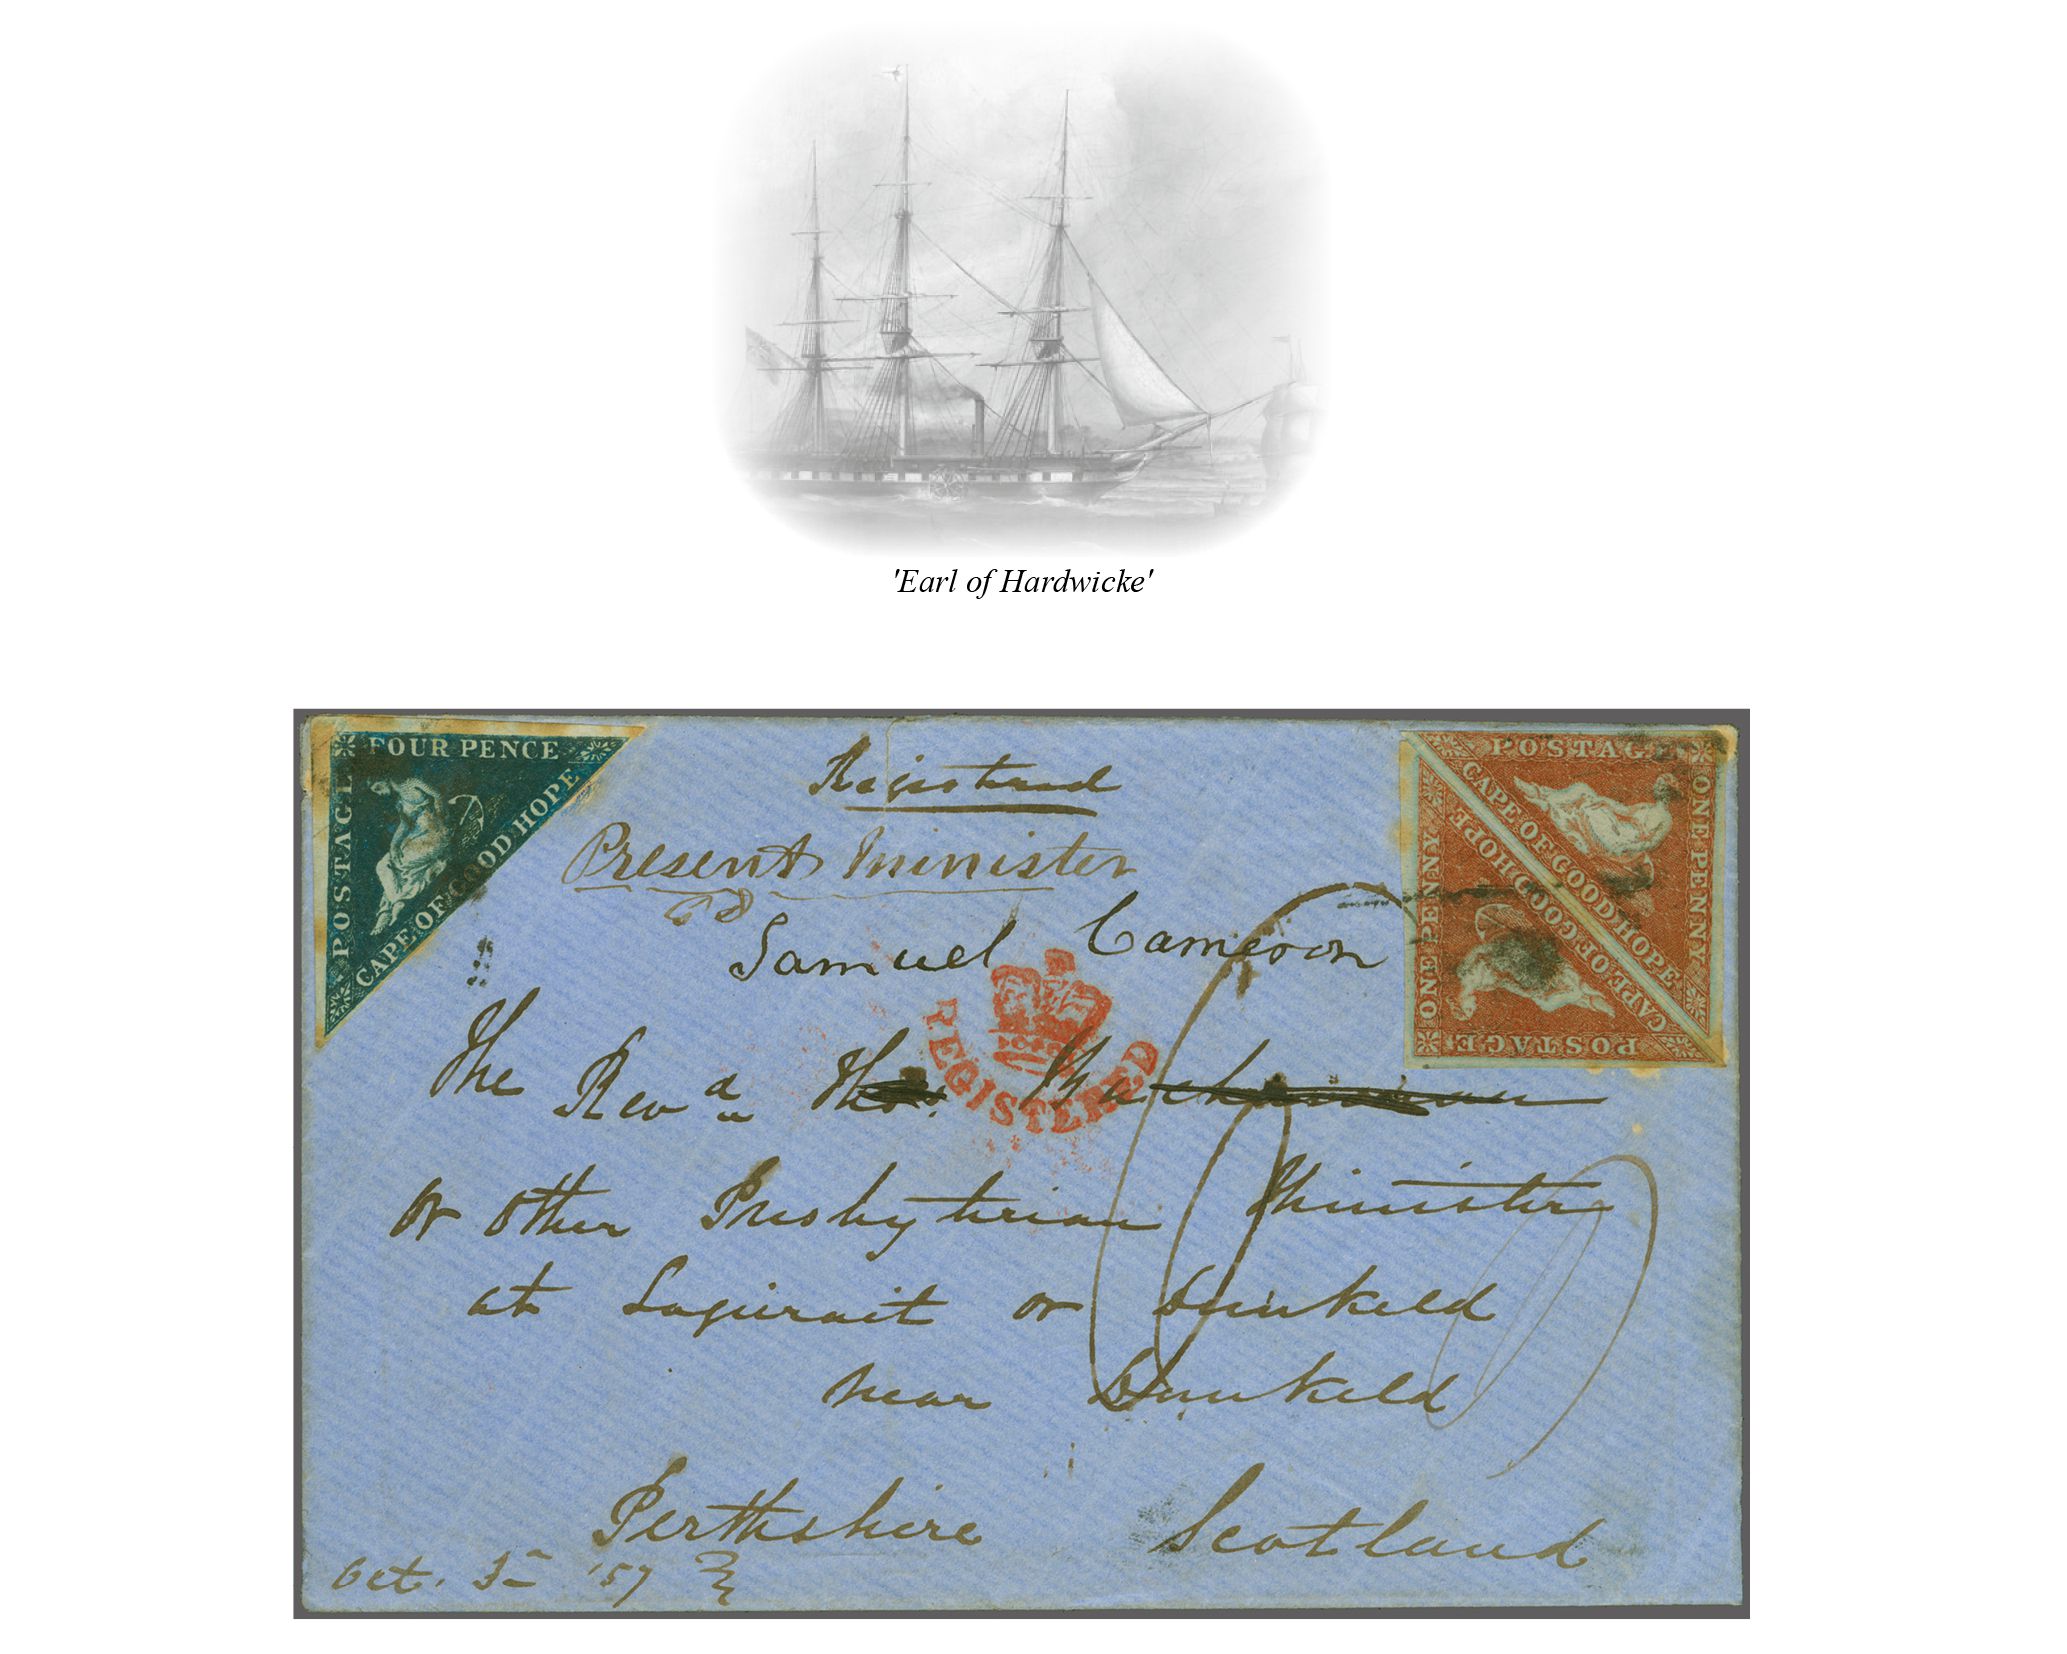 'Earl of Hardwicke'
POSTAGE FOUR PENCE CAPE OF GOOD HOPE
POSTAGE ONE PENNY CAPE OF GOOD HOPE
ONE PENNY POSTAGE CAPE OF GOOD HOPE
Registered
Present Minister
6d
Samuel Cameron
REGISTERED
The Revd Thos.
or other Presbyterian Minister
at Logierait or Dunkeld
near Dunkeld
Perthshire Scotland
Oct. 3 '57